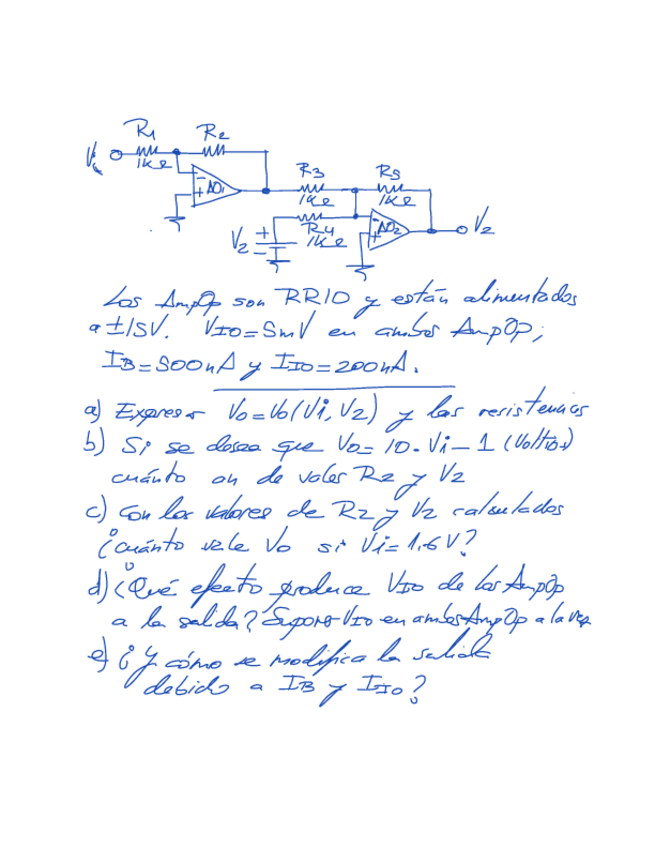 R1 R2
Vi 1KΩ
AO1
R3 R5
1KΩ 1KΩ
R4 AO2 V2
V2 1KΩ
Los AmpOp son RRIO y están alimentados
a ±15V. VIO=5mV en ambos AmpOp;
IB=500nA y IIO=200nA.
a) Expresar Vo=Vo(Vi,V2) y las resistencias
b) Si se desea que Vo= 10·Vi-1 (Voltios)
cuánto han de valer R2 y V2
c) Con los valores de R2 y V2 calculados
¿cuánto vale Vo si Vi=1,6V?
d) ¿Qué efecto produce VIO de los AmpOp
a la salida? Supone VIO en ambos AmpOp a la vez
e) ¿Y cómo se modifica la salida
debido a IB y IIO?